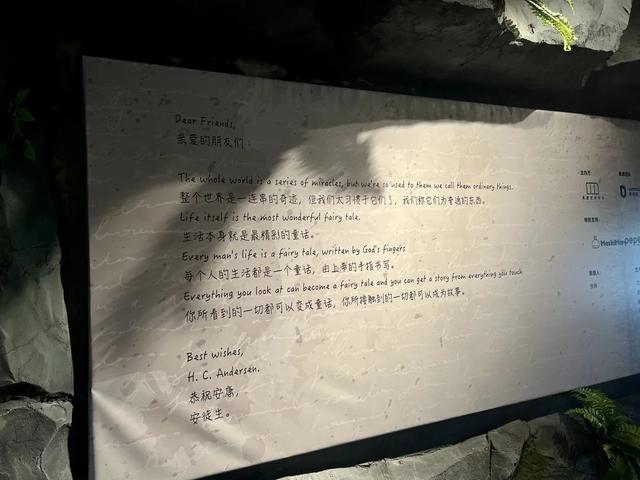 Dear Friends,
亲爱的朋友们：
The whole world is a series of miracles, but we're so used to them we call them ordinary things.
整个世界是一连串的奇迹，但我们太习惯于它们了，我们称它们为普通的东西。
Life itself is the most wonderful fairy tale.
生活本身就是最精彩的童话。
Every man's life is a fairy tale, written by God's fingers
每个人的生活都是一个童话，由上帝的手指书写。
Everything you look at can become a fairy tale and you can get a story from everything you touch
你所看到的一切都可以变成童话，你所接触到的一切都可以成为故事。
Best wishes,
H. C. Andersen.
恭祝安康，
安徒生。
主办方：